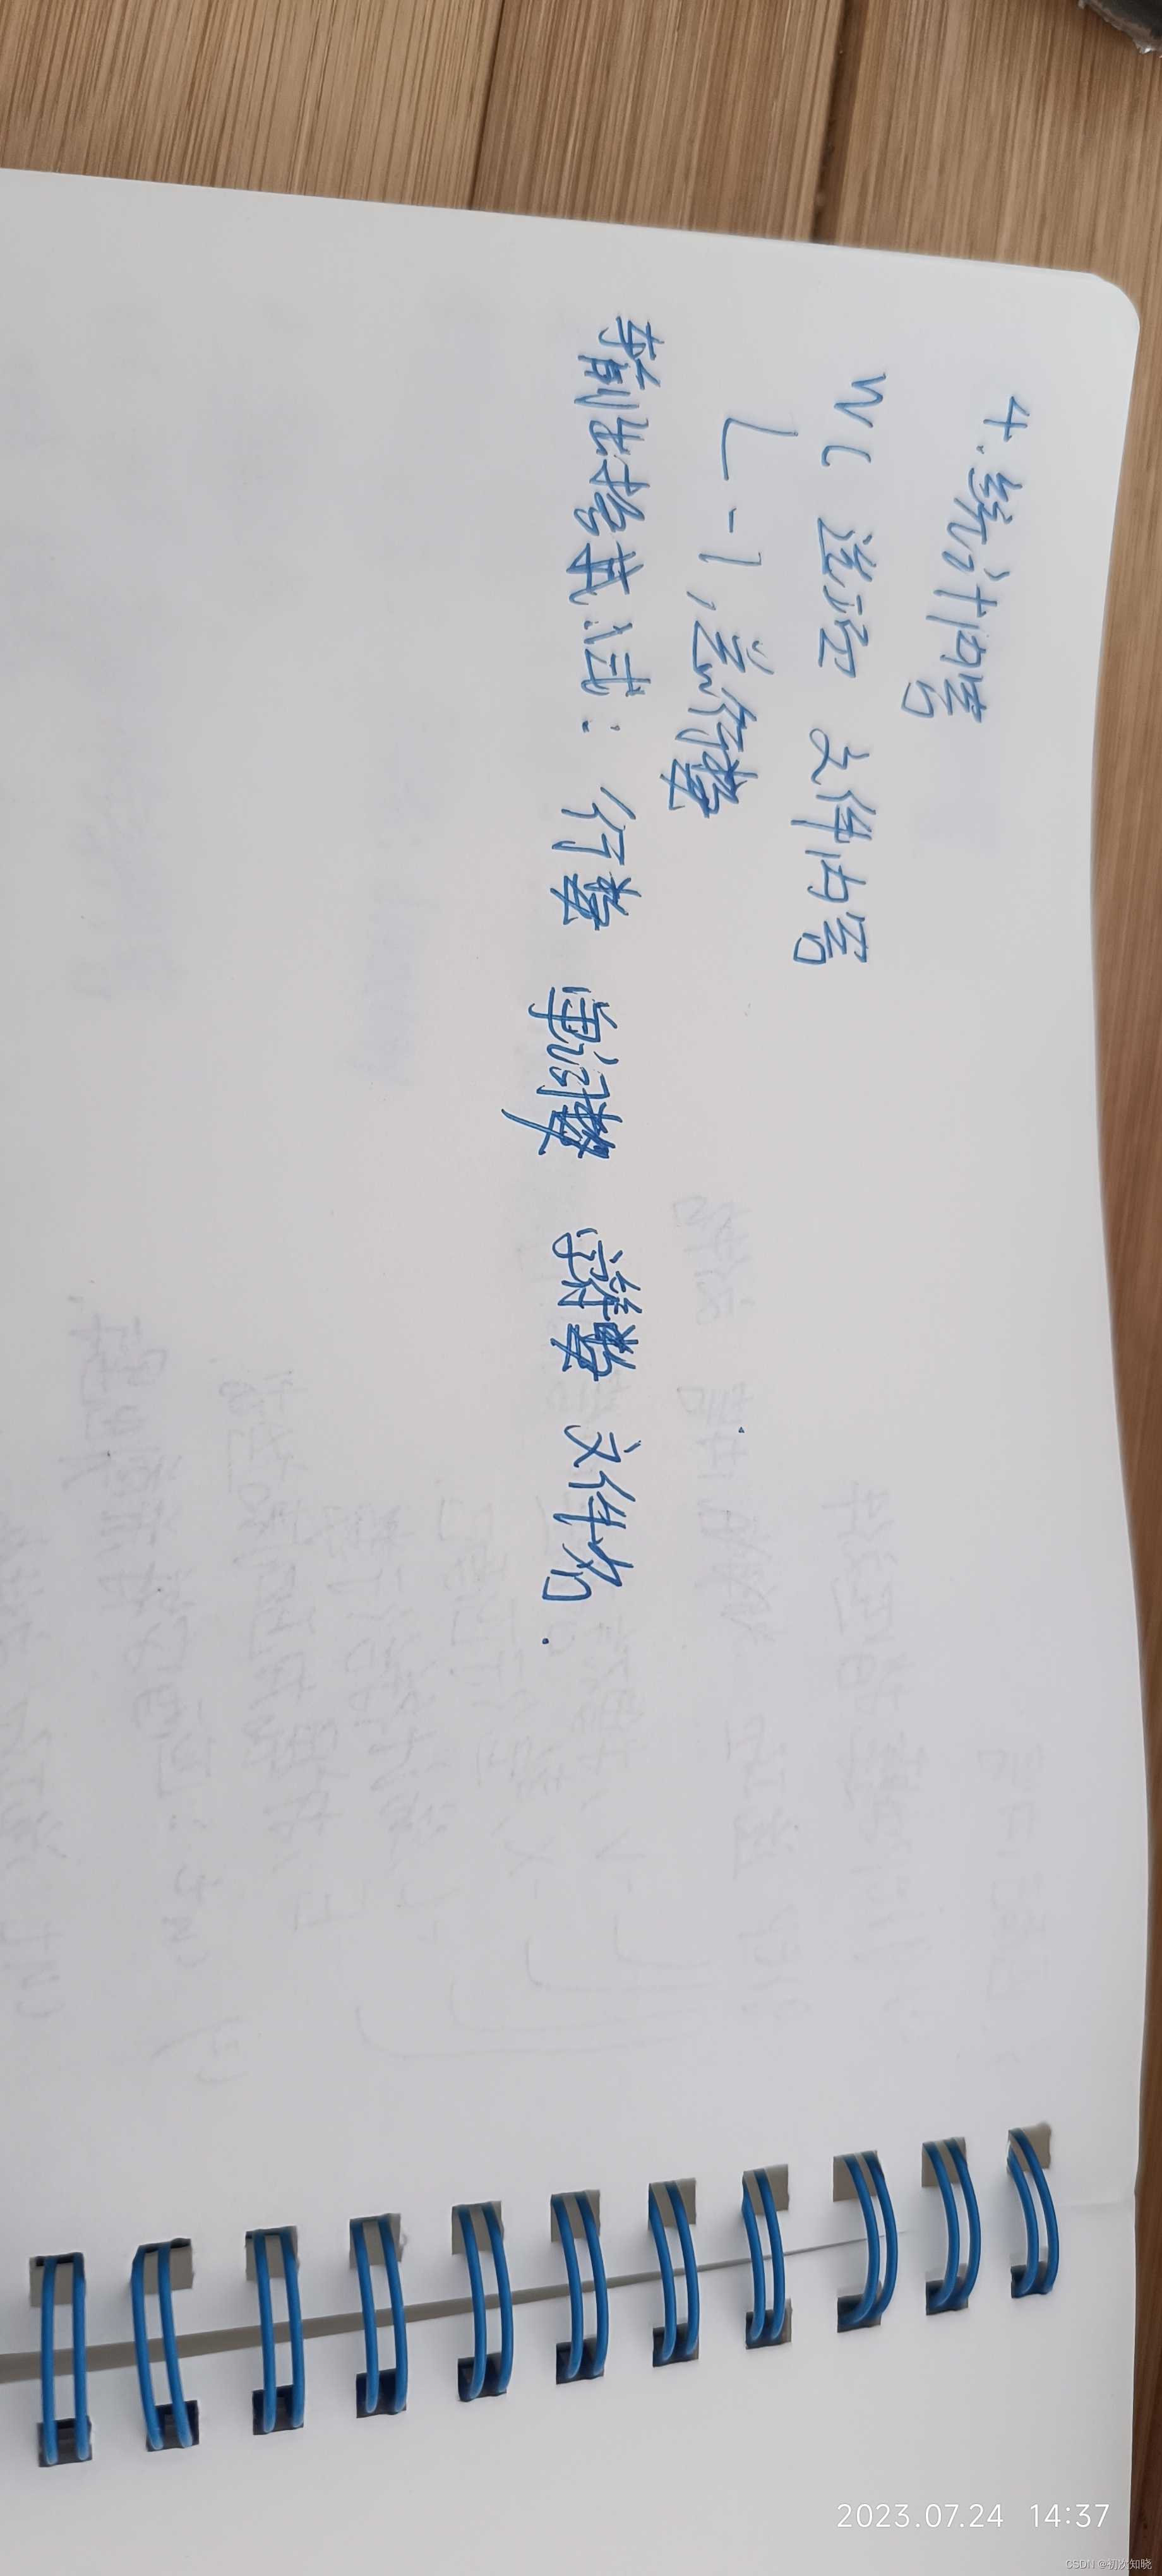 4.统计内容
wc 选项 文件内容
L -l,总行数
输出格式试: 行数 单词数 字符数 文件名.
2023.07.24 14:37
CSDN @初次知晓